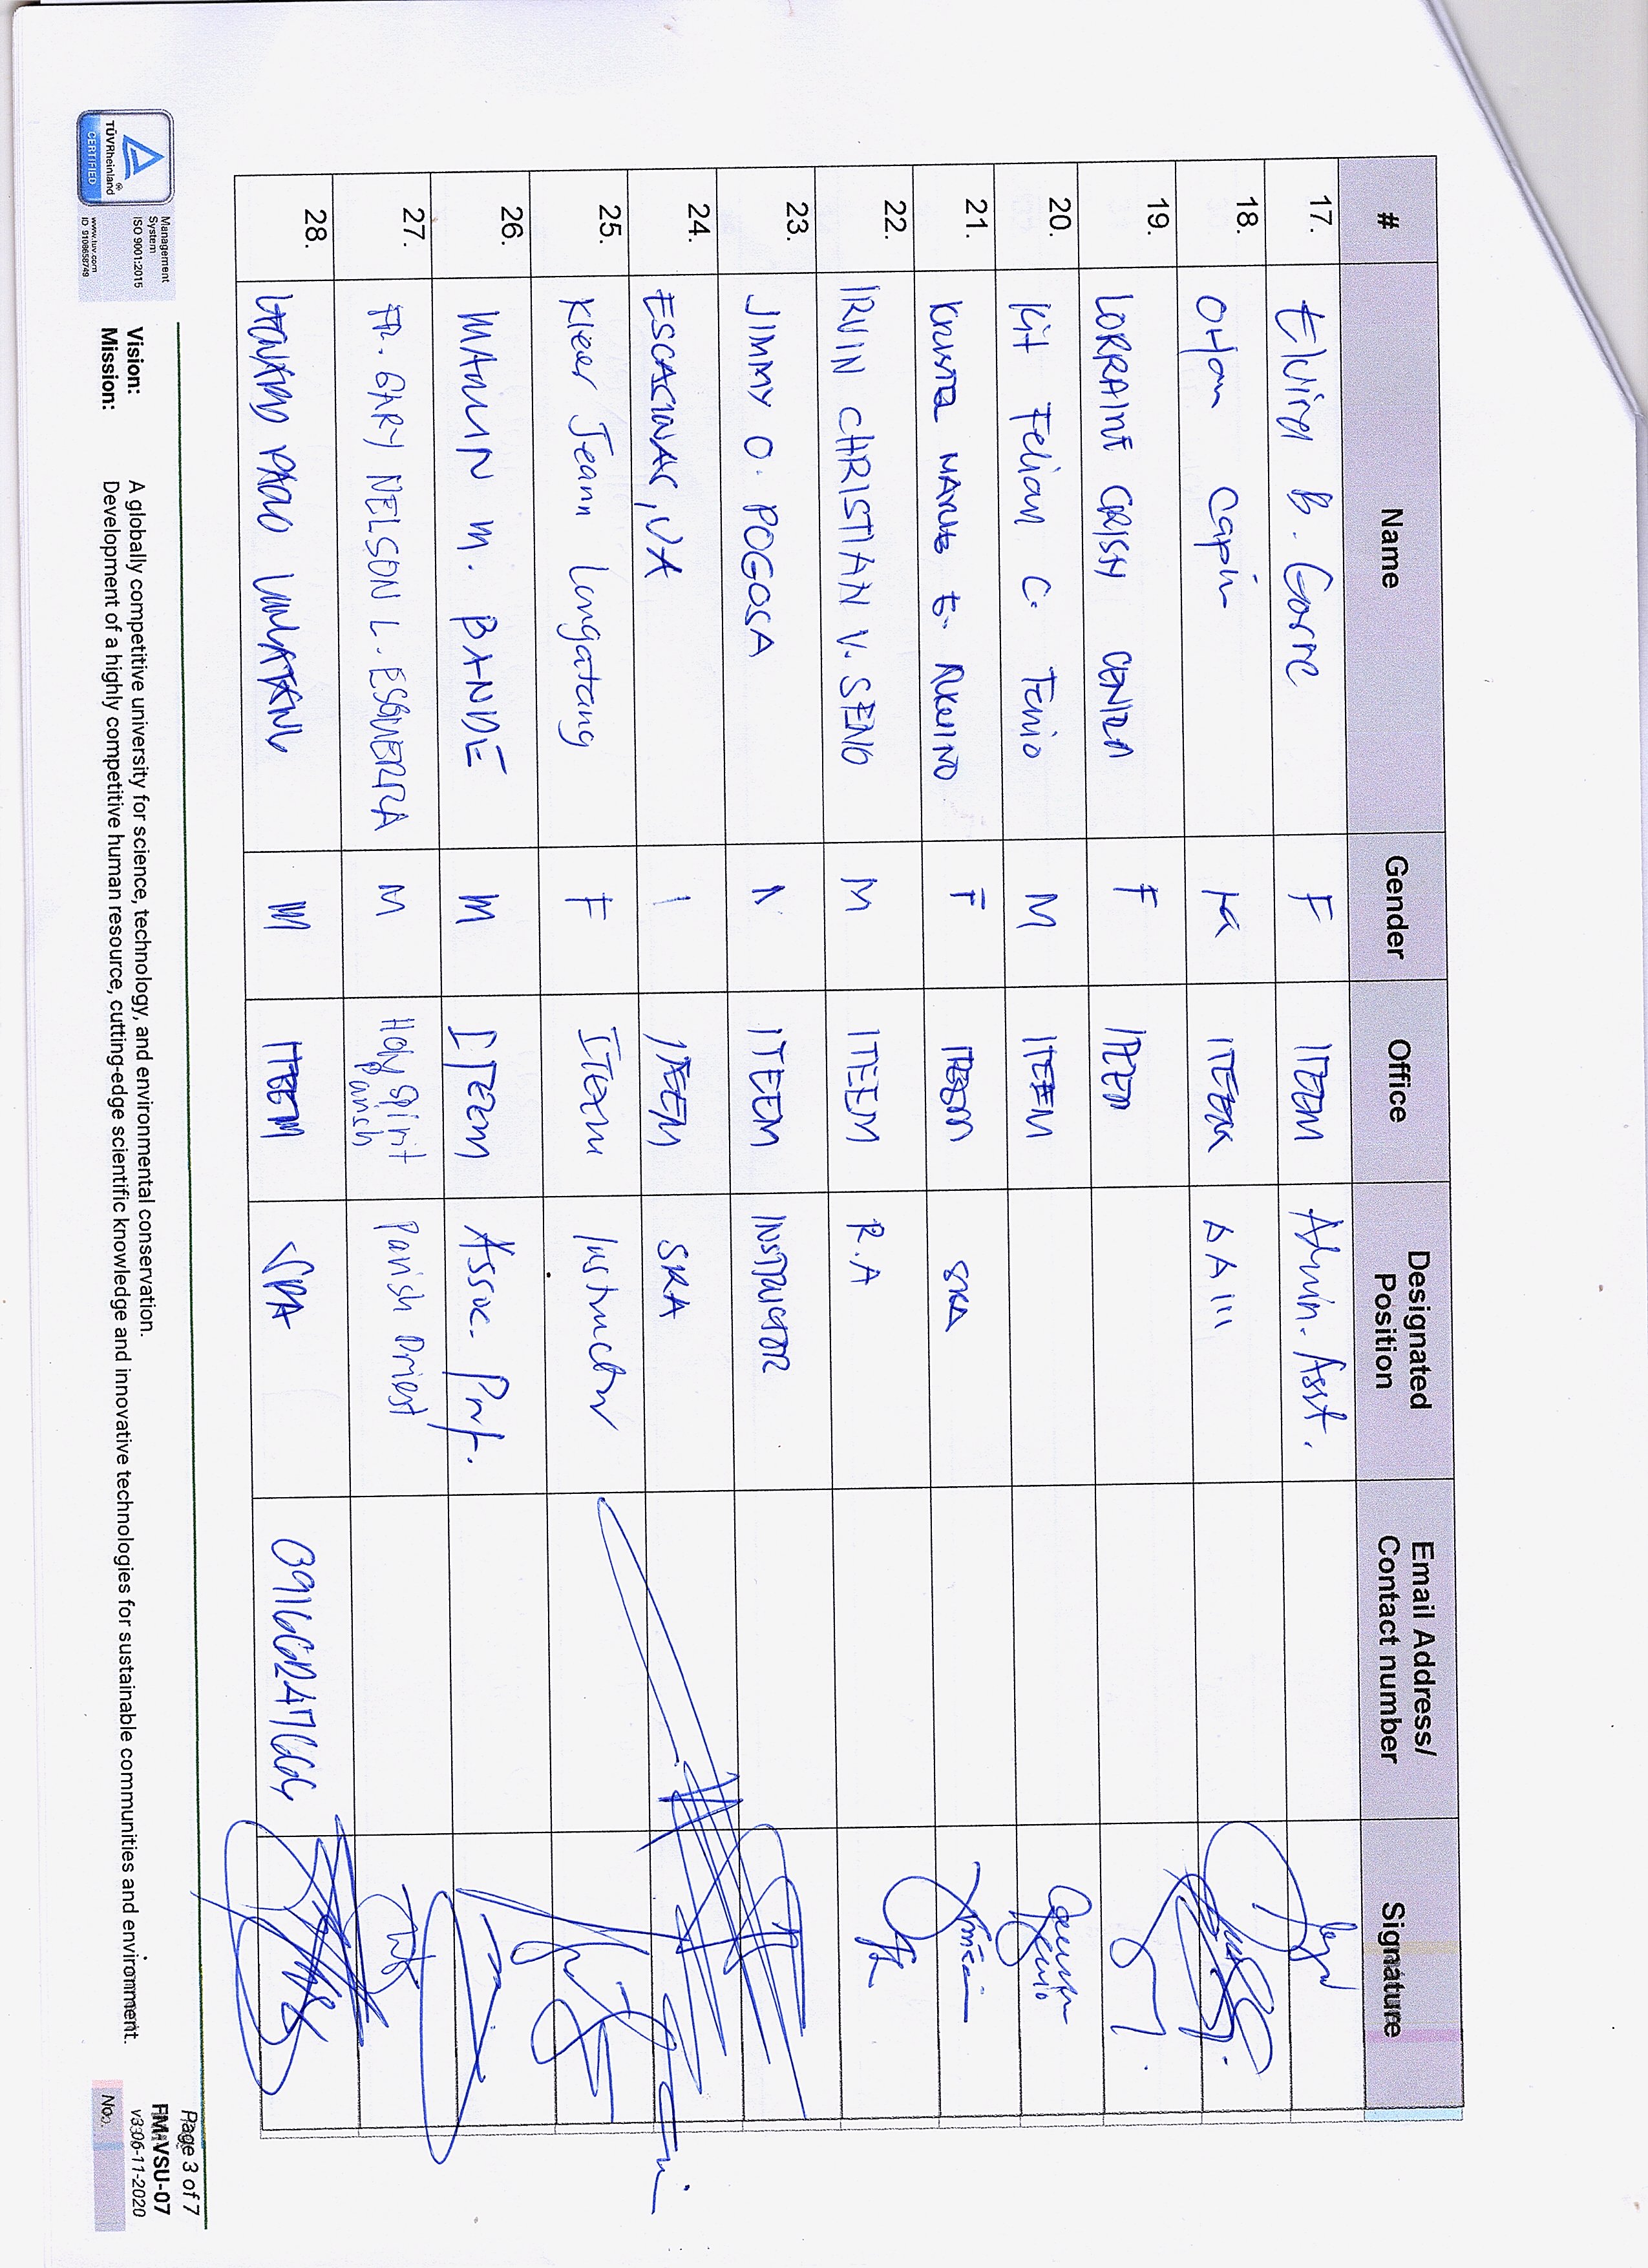 # Name Gender Office Designated Position Email Address/ Contact number Signature
17. Elvira B. Gorre F ITEEM Admin. Asst.
18. Othan Capin M ITEEM AA III
19. LORRAINE CRISTY CENIZA F ITEEM
20. Kit Felian C. Tenio M ITEEM
21. F ITEEM SRA
22. IRVIN CHRISTIAN V. SENO M ITEEM R.A
23. JIMMY O. POGOSA ITEEM INSTRUCTOR
24. ESCASINAS, VA ITEEM SRA
25. Kleer Jeann Longatang F ITEEM Instructor
26. MARLIN M. BANDE M ITEEM Assoc. Prof.
27. FR. GARY NELSON L. ESGUERRA M Holy Spirit Parish Parish Priest
28. PAOLO M ITEEM SRA
Page 3 of 7
FM-VSU-07
v3 06-11-2020
No.
Vision: A globally competitive university for science, technology, and environmental conservation.
Mission: Development of a highly competitive human resource, cutting-edge scientific knowledge and innovative technologies for sustainable communities and environment.
TÜVRheinland®
CERTIFIED
Management
System
ISO 9001:2015
www.tuv.com
ID 9108658749